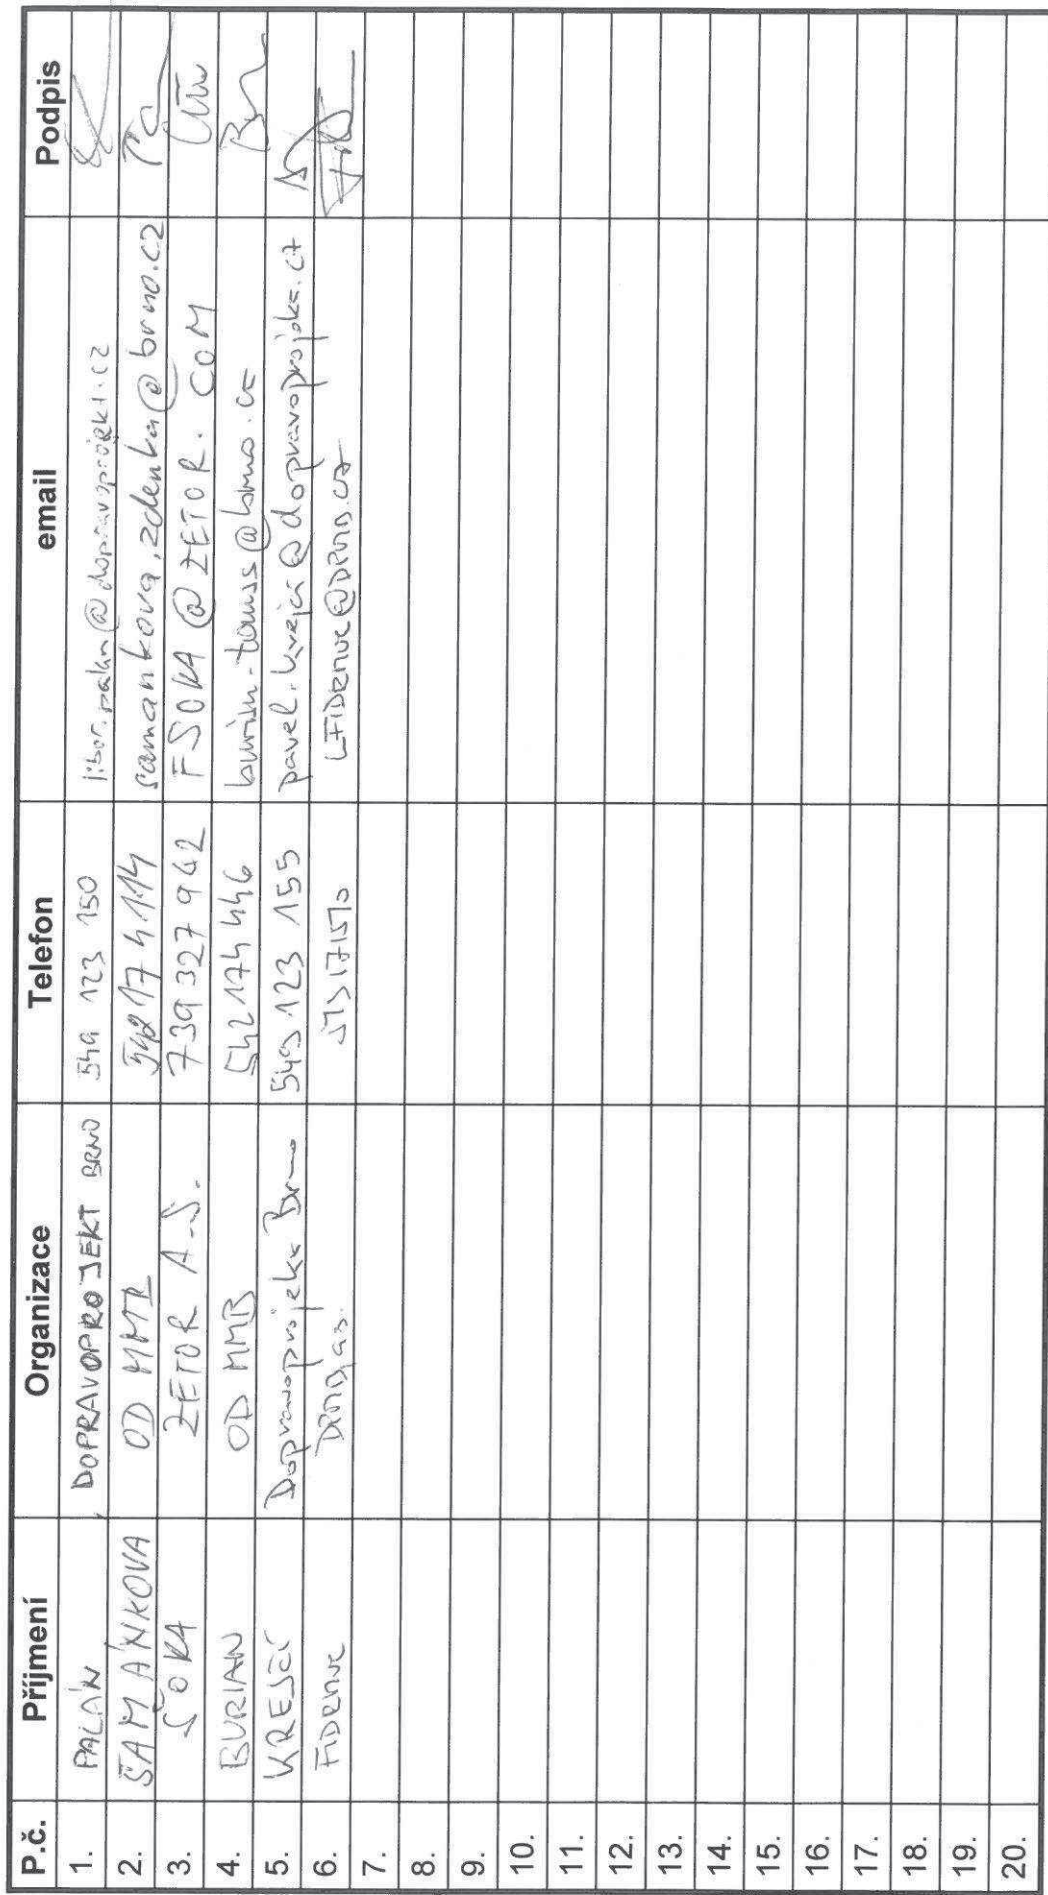 P.č. Příjmení Organizace Telefon email Podpis
1. PALÁN DOPRAVOPROJEKT BRNO 549 123 150 libor.palan@dopravoprojekt.cz
2. ŠAMÁNKOVÁ OD MMB 542174114 samankova.zdenka@brno.cz
3. ŠOKA ZETOR A.S. 739 327 942 FSOKA@ZETOR.COM
4. BURIAN OD MMB 542 174 446
5. KREJČÍ Dopravoprojekt Brno 549 123 155 pavel.krejci@dopravoprojekt.cz
6.
7.
8.
9.
10.
11.
12.
13.
14.
15.
16.
17.
18.
19.
20.